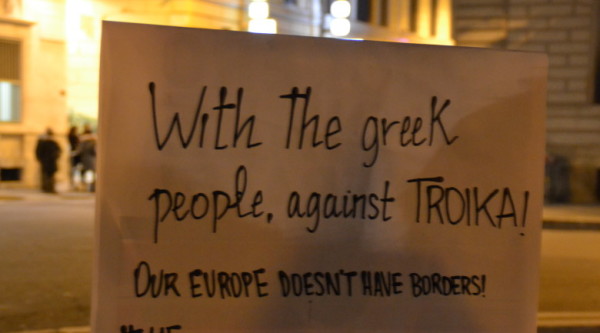 With The greek
people, against TROIKA!
OUR EUROPE DOESN'T HAVE BORDERS!